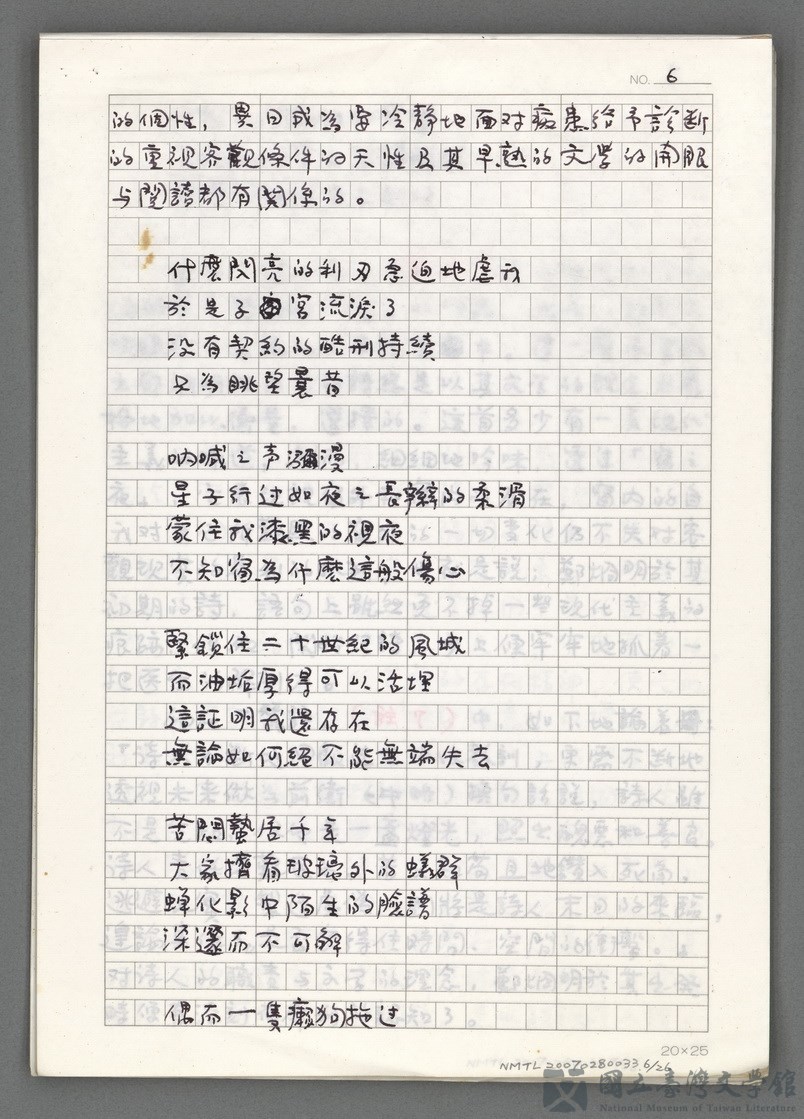 NO. 6
的個性，異日成為要冷靜地面对疾患給予診断
的重視客觀條件的天性及其早熟的文学的開眼
与閱讀都有関係的。
什麼閃亮的利刃急迫地虐我
於是子宮流淚了
没有契約的酷刑持續
只為眺望曩昔
吶喊之声瀰漫
星子行过如夜之長辮的柔滑
蒙住我漆黑的視夜
不知窗為什麼這般傷心
緊鎖住二十世紀的風城
而油垢厚得可以活埋
這証明我還存在
無論如何絕不能無端失去
苦悶蟄居千年
大家擠看玻璃外的蟻群
蟬化影中陌生的臉譜
深邃而不可解
偶而一隻癩狗拖过
20×25
NMTL20070280033 6/26
國立臺灣文學館
National Museum of Taiwan Literature